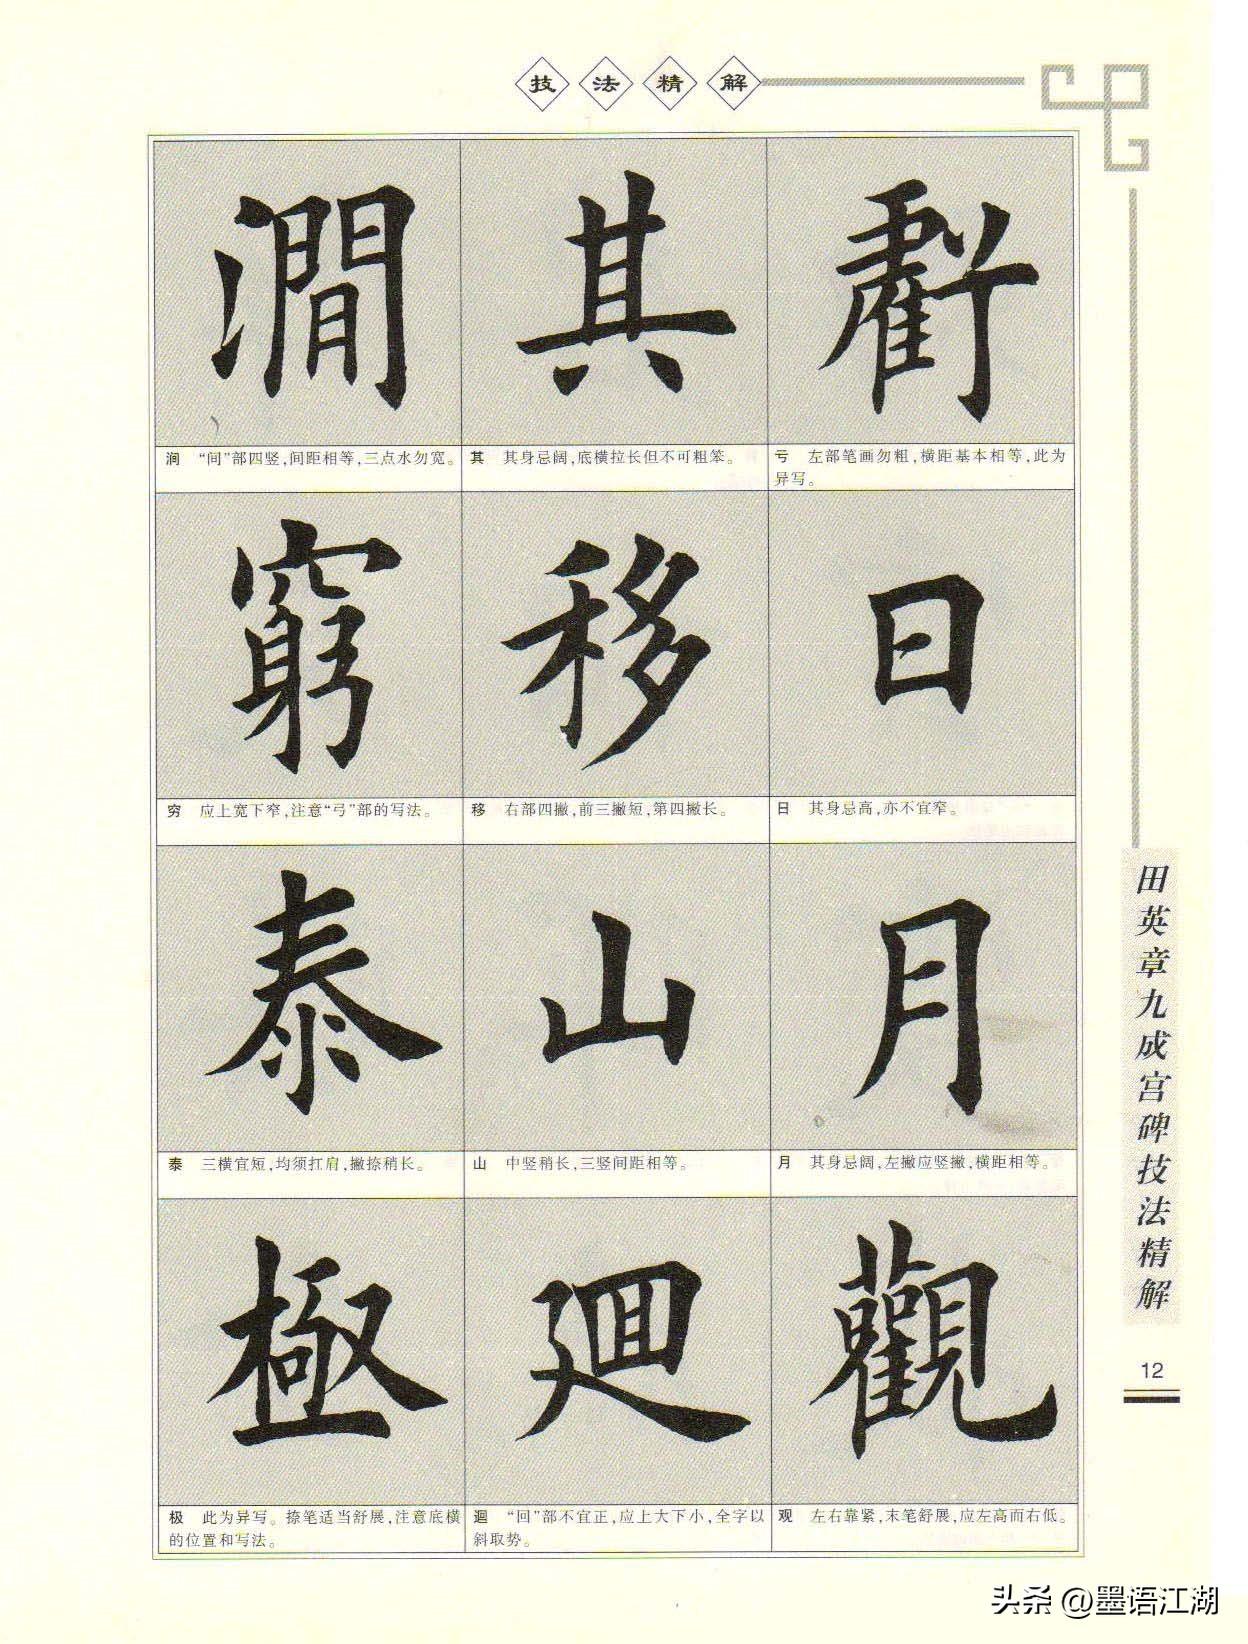 技法精解
澗 其 虧
涧 “间”部四竖,间距相等,三点水勿宽。
其 其身忌阔,底横拉长但不可粗笨。
亏 左部笔画勿粗,横距基本相等,此为
异写。
窮 移 日
穷 应上宽下窄,注意“弓”部的写法。
移 右部四撇,前三撇短,第四撇长。
日 其身忌高,亦不宜窄。
泰 山 月
泰 三横宜短,均须扛肩,撇捺稍长。
山 中竖稍长,三竖间距相等。
月 其身忌阔,左撇应竖撇,横距相等。
極 迴 觀
极 此为异写。捺笔适当舒展,注意底横
的位置和写法。
迴 “回”部不宜正,应上大下小,全字以
斜取势。
观 左右靠紧,末笔舒展,应左高而右低。
田英章九成宫碑技法精解
12
头条 @墨语江湖